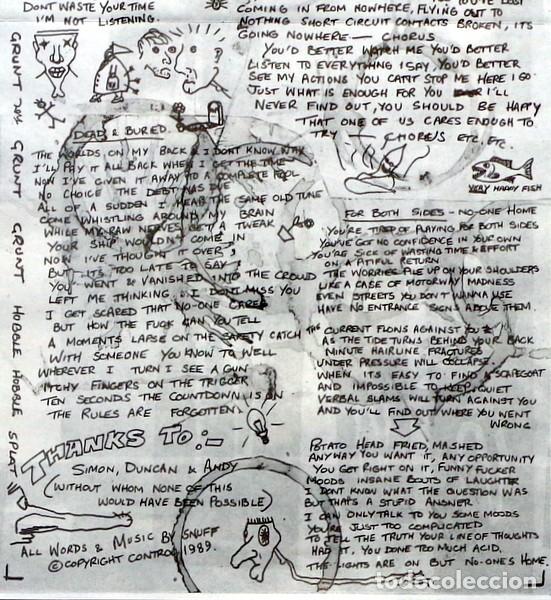 DON'T WASTE YOUR TIME
I'M NOT LISTENING.
GRUNT GRUNT GRUNT HOBBLE HOBBLE SPLAT
DEAD & BURIED.
THE WORLDS ON MY BACK & I DON'T KNOW WHY
I'LL PAY IT ALL BACK WHEN I GET THE TIME
NOW I'VE GIVEN IT AWAY TO A COMPLETE FOOL
NO CHOICE THE DEBT WAS DUE
ALL OF A SUDDEN I HEAR THE SAME OLD TUNE
COME WHISTLING AROUND MY BRAIN
WHILE MY RAW NERVES GET A TWEAK
YOUR SHIP WOULDN'T COME IN
NOW I'VE THOUGHT IT OVER,
BUT IT'S TOO LATE TO SAY,
YOU WENT & VANISHED INTO THE CROWD
LEFT ME THINKING. & I DON'T MISS YOU
I GET SCARED THAT NO-ONE CARES
BUT HOW THE FUCK CAN YOU TELL
A MOMENTS LAPSE ON THE SAFETY CATCH
WITH SOMEONE YOU KNOW TO WELL
WHEREVER I TURN I SEE A GUN
ITCHY FINGERS ON THE TRIGGER
TEN SECONDS THE COUNTDOWN IS ON
THE RULES ARE FORGOTTEN.
THANKS TO:-
SIMON, DUNCAN & ANDY
(WITHOUT WHOM NONE OF THIS
WOULD HAVE BEEN POSSIBLE)
ALL WORDS & MUSIC BY SNUFF
© COPYRIGHT CONTROL 1989.
COMING IN FROM NOWHERE, FLYING OUT TO
NOTHING SHORT CIRCUIT CONTACTS BROKEN, ITS
GOING NOWHERE — CHORUS
YOU'D BETTER WATCH ME YOU'D BETTER
LISTEN TO EVERYTHING I SAY, YOU'D BETTER
SEE MY ACTIONS YOU CAN'T STOP ME HERE I GO.
JUST WHAT IS ENOUGH FOR YOU I'LL
NEVER FIND OUT, YOU SHOULD BE HAPPY
THAT ONE OF US CARES ENOUGH TO
TRY — CHORUS ETC. ETC.
VERY HAPPY FISH
FOR BOTH SIDES - NO-ONE HOME
YOU'RE TIRED OF PLAYING FOR BOTH SIDES
YOU'VE GOT NO CONFIDENCE IN YOUR OWN
YOU'RE SICK OF WASTING TIME & EFFORT
ON A PITIFUL RETURN
THE WORRIES PILE UP ON YOUR SHOULDERS
LIKE A CASE OF MOTORWAY MADNESS
EVEN STREETS YOU DON'T WANNA USE
HAVE NO ENTRANCE SIGNS ABOVE THEM.
THE CURRENT FLOWS AGAINST YOU &
AS THE TIDE TURNS BEHIND YOUR BACK
MINUTE HAIRLINE FRACTURES
UNDER PRESSURE WILL COLLAPSE.
WHEN ITS EASY TO FIND A SCAPEGOAT
AND IMPOSSIBLE TO KEEP QUIET
VERBAL SLAMS WILL TURN AGAINST YOU
AND YOU'LL FIND OUT WHERE YOU WENT
WRONG
POTATO HEAD FRIED, MASHED
ANYWAY YOU WANT IT, ANY OPPORTUNITY
YOU GET RIGHT ON IT, FUNNY FUCKER
MOODS INSANE BOUTS OF LAUGHTER
I DON'T KNOW WHAT THE QUESTION WAS
BUT THATS A STUPID ANSWER.
I CAN ONLY TALK TO YOU SOME MOODS
YOU'RE JUST TOO COMPLICATED
TO TELL THE TRUTH YOUR LINE OF THOUGHTS
HAD IT, YOU DONE TOO MUCH ACID.
THE LIGHTS ARE ON BUT NO-ONE'S HOME.
todocoleccion